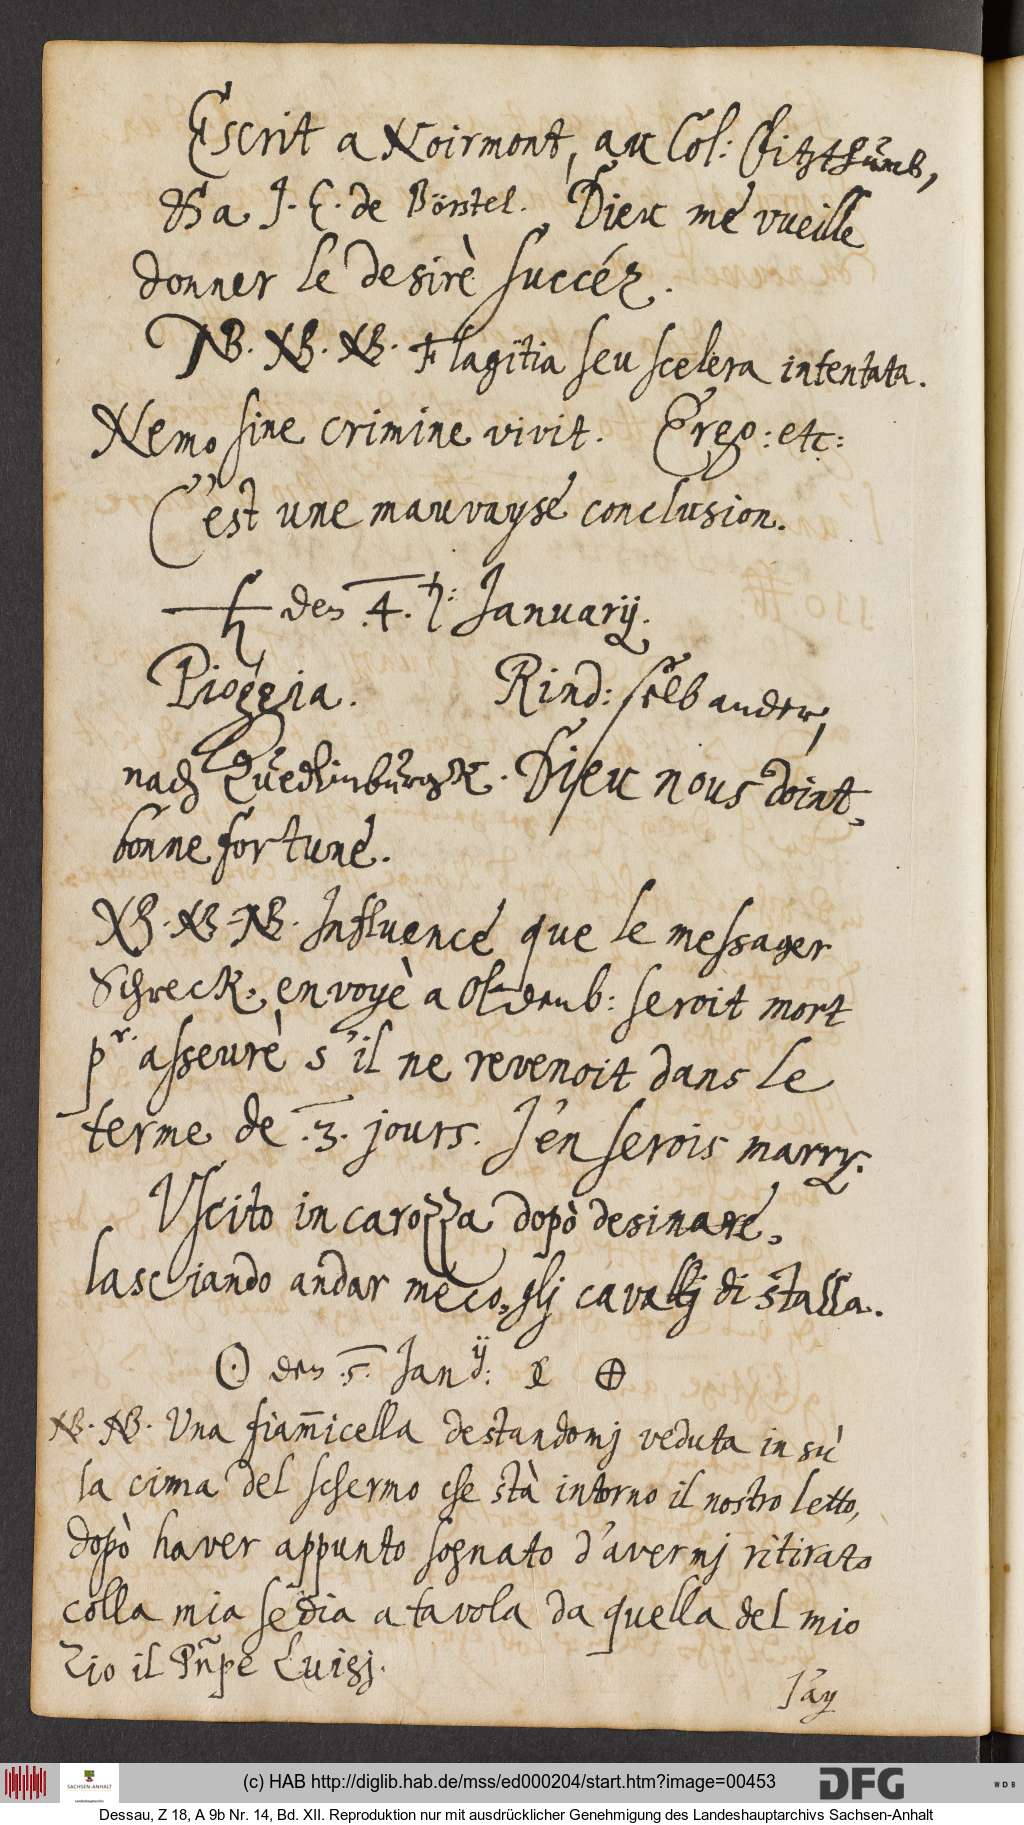 Escrit a Noirmont, au Col: Fitzthumb,
& a J. E. de Börstel. Dieu me vueille
donner le desirè succéz.
NB. NB. NB. Flagitia seu scelera intentata.
Nemo sine crimine vivit. Ergo: etc:
C'est une mauvayse conclusion.
♄ den .4. t: Januarij.
Pioggia. Rind: selb ander,
nach Quedlinburgk. Dieu nous doint,
bonne fortune.
NB. NB. NB. Influence que le messager
Schreck, envoyè a Oldenb: seroit mort
pr. asseurè s'il ne revenoit dans le
terme de .3. jours. J'en serois marry.
Uscito in carozza dopò desinare,
lasciando andar meco, glj cavallj di stalla.
☉ den .5. Jan ij: ⊕
NB. NB. Una fiam̄icella destandomj veduta in sù
la cima del schermo che stà intorno il nostro letto,
dopò haver appunto sognato d'avermj ritirato
colla mia sedia a tavola da quella del mio
Zio il Pñpe Luigj.
J'ay
(c) HAB http://diglib.hab.de/mss/ed000204/start.htm?image=00453
SACHSEN-ANHALT
DFG
WDB
Dessau, Z 18, A 9b Nr. 14, Bd. XII. Reproduktion nur mit ausdrücklicher Genehmigung des Landeshauptarchivs Sachsen-Anhalt